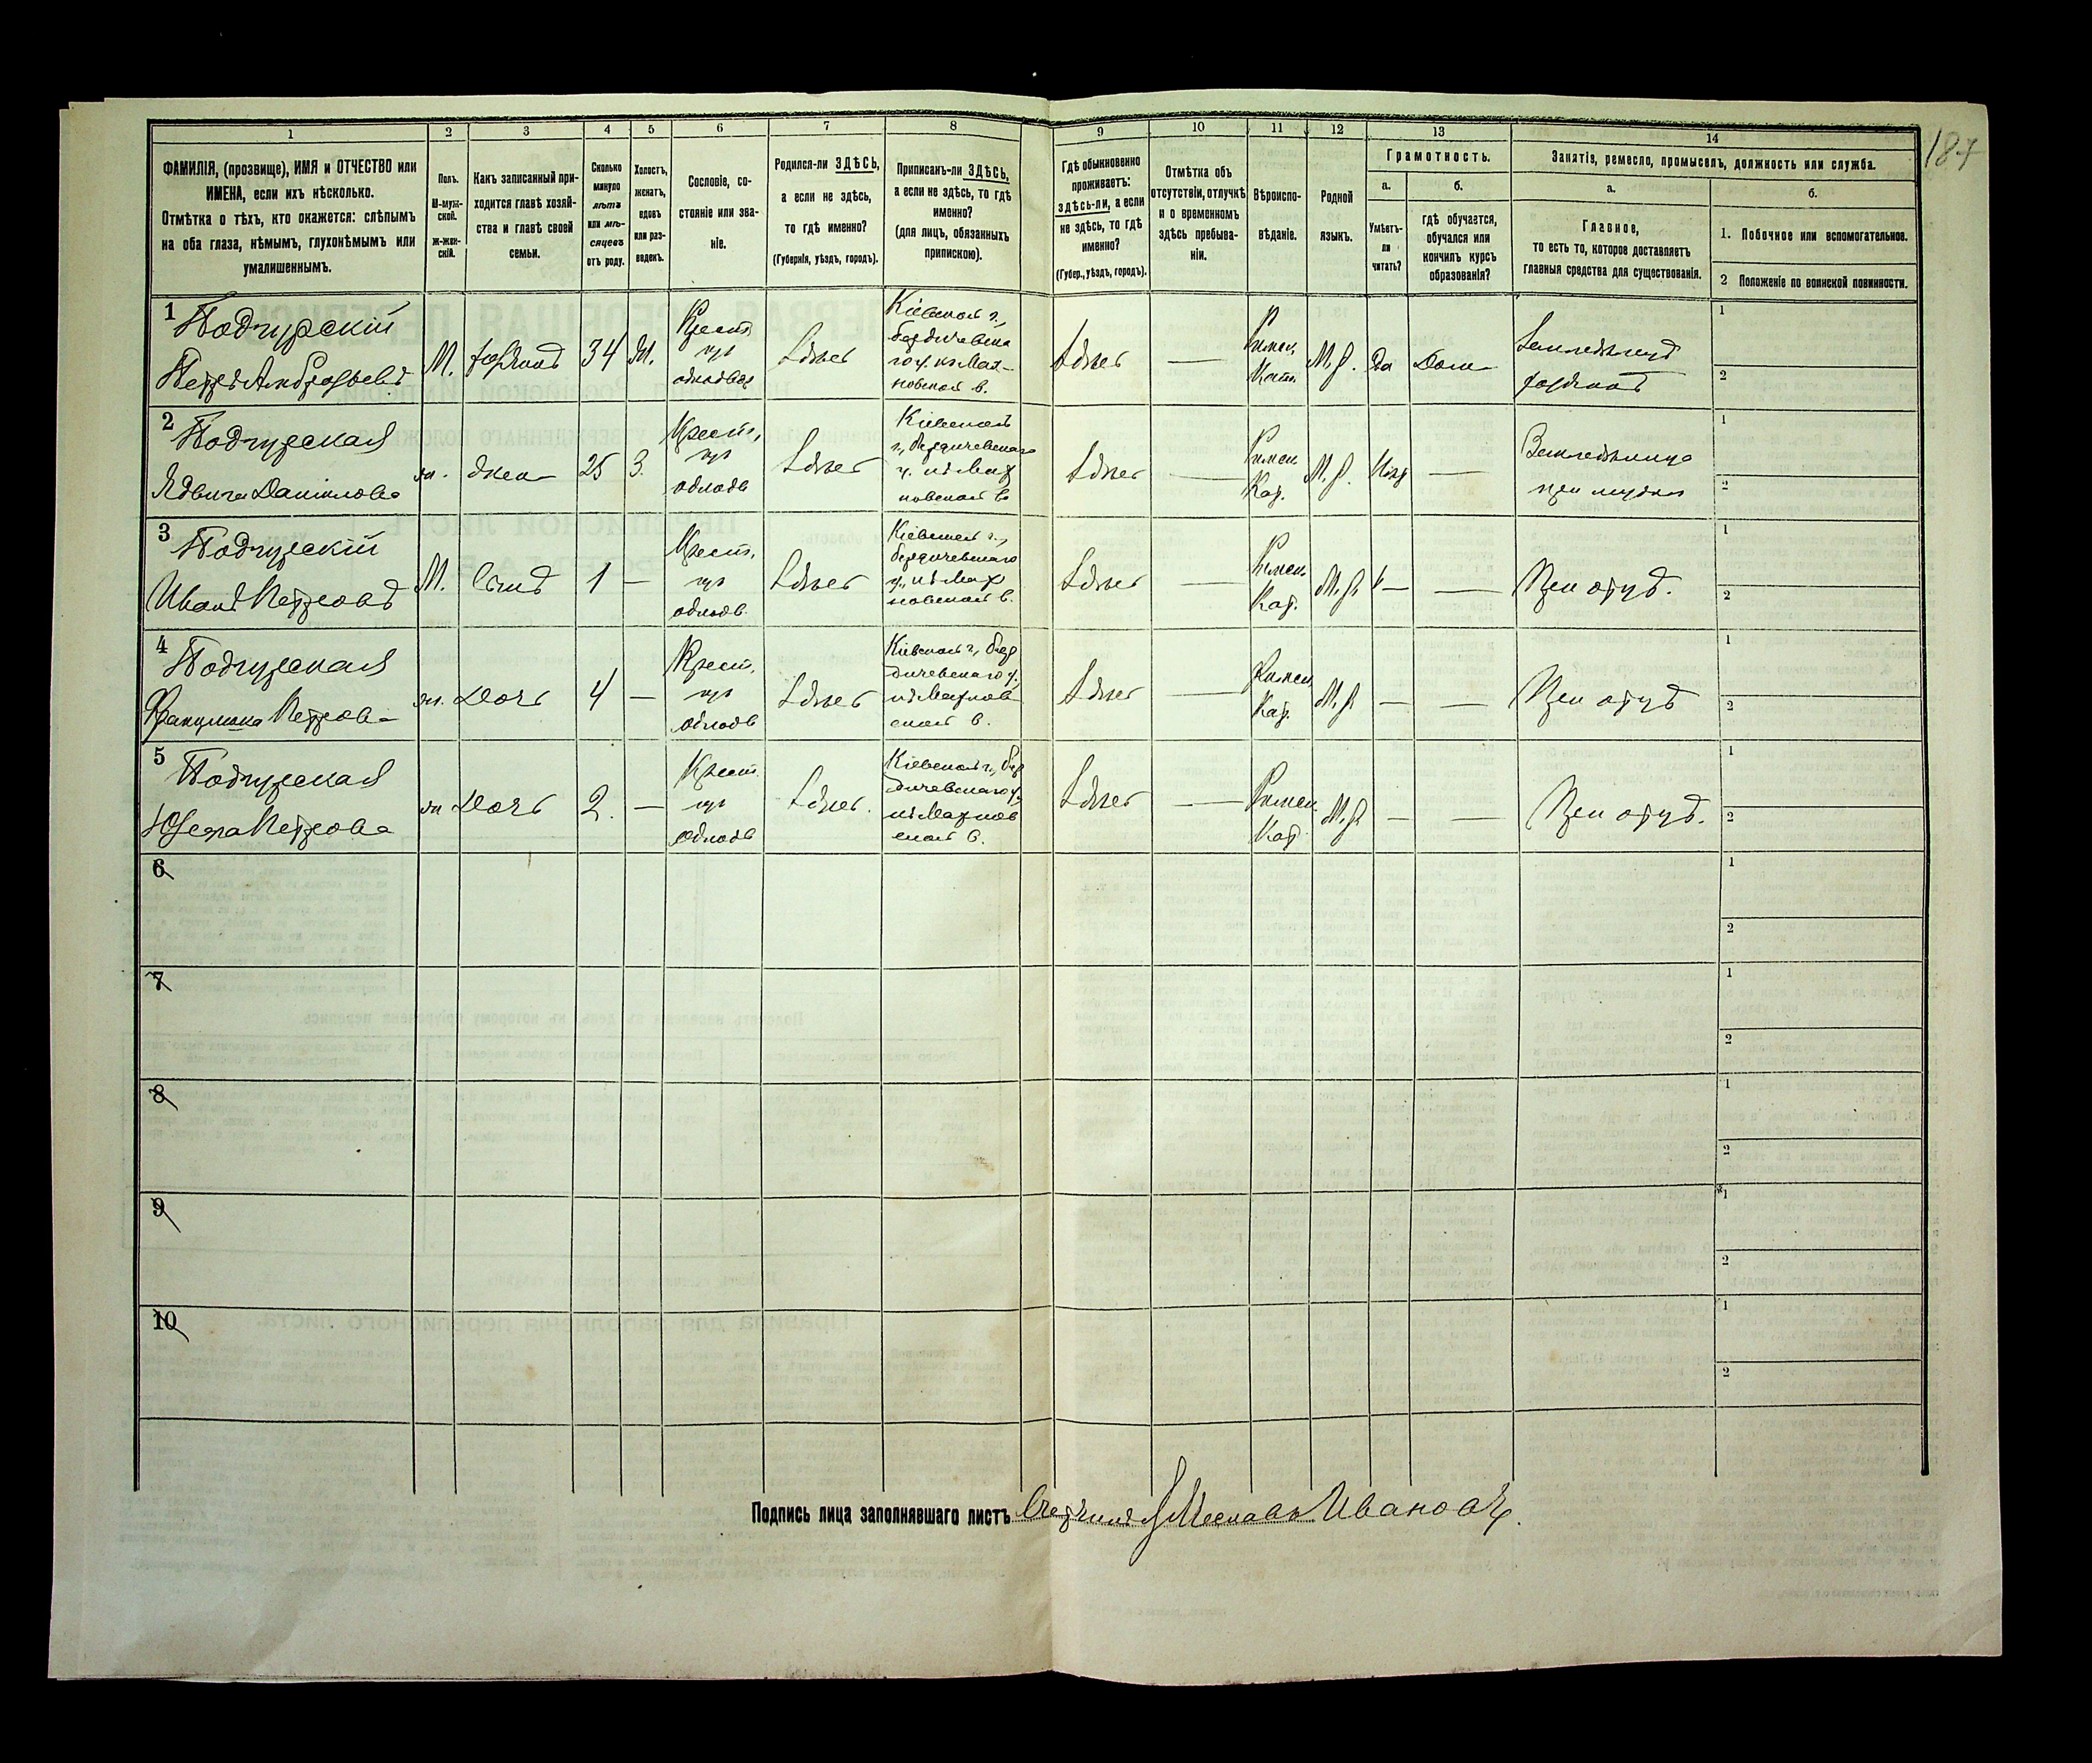 187
1 2 3 4 5 6 7 8 9 10 11 12 13 14
ФАМИЛІЯ, (прозвище), ИМЯ и ОТЧЕСТВО или
ИМЕНА, если ихъ нѣсколько.
Отмѣтка о тѣхъ, кто окажется: слѣпымъ
на оба глаза, нѣмымъ, глухонѣмымъ или
умалишеннымъ.
Полъ.
М-муж-
ской.
Ж-жен-
скій.
Какъ записанный при-
ходится главѣ хозяй-
ства и главѣ своей
семьи.
Сколько
минуло
лѣтъ
или мѣ-
сяцевъ
отъ роду.
Холостъ,
женатъ,
вдовъ
или раз-
веденъ.
Сословіе, со-
стояніе или зва-
ніе.
Родился-ли ЗДѢСЬ,
а если не здѣсь,
то гдѣ именно?
(Губернія, уѣздъ, городъ).
Приписанъ-ли ЗДѢСЬ,
а если не здѣсь, то гдѣ
именно?
(для лицъ, обязанныхъ
припискою).
Гдѣ обыкновенно
проживаетъ:
здѣсь-ли, а если
не здѣсь, то гдѣ
именно?
(Губер., уѣздъ, городъ).
Отмѣтка объ
отсутствіи, отлучкѣ
и о временномъ
здѣсь пребыва-
ніи.
Вѣроиспо-
вѣданіе.
Родной
языкъ.
Грамотность.
а.
Умѣетъ-
ли
читать?
б.
гдѣ обучается,
обучался или
кончилъ курсъ
образованія?
Занятіе, ремесло, промыселъ, должность или служба.
а.
Главное,
то есть то, которое доставляетъ
главныя средства для существованія.
б.
1. Побочное или вспомогательное.
2 Положеніе по воинской повинности.
1 Подгурскій
Петръ
М. 34
Крест.
Здѣсь
Кіевской г.,
бердичевска
го у.
новской в.
Здѣсь —
Римск.
Кат.
М.р. Да Дома
1
2
2 Подгурская
Ядвига Даніилова
ж. жена 25 З.
Крест.
Здѣсь
Кіевской
г., Бердичевскаго
у.
новской в.
Здѣсь —
Римск.
Кат.
М.р. —
при мужѣ
1
2
3 Подгурскій
Иванъ Петровъ
М. Сынъ 1 —
Крест.
Здѣсь
Кіевской г.,
бердичевскаго
у.
новской в.
Здѣсь —
Римск.
Кат.
М.р. — —
При отцѣ.
1
2
4 Подгурская
Петрова
ж. Дочь 4 —
Крест.
Здѣсь
Кіевской г., бер
дичевскаго у.
Махнов
ской в.
Здѣсь —
Римск.
Кат.
М.р. — —
При отцѣ
1
2
5 Подгурская
Юзефа Петрова
ж. Дочь 2. —
Крест.
Здѣсь.
Кіевской г., бер
дичевскаго у.
Махнов
ской в.
Здѣсь —
Римск.
Кат.
М.р. — —
При отцѣ.
1
2
6
1
2
7
1
2
8
1
2
9
1
2
10
1
2
Подпись лица заполнявшаго листъ